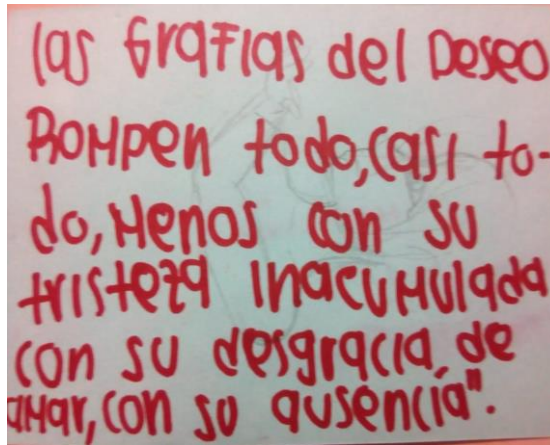 las grafias del Deseo
Rompen todo, casi to-
do, menos con su
tristeza inacumulada
con su desgracia, de
amar, con su ausencia".